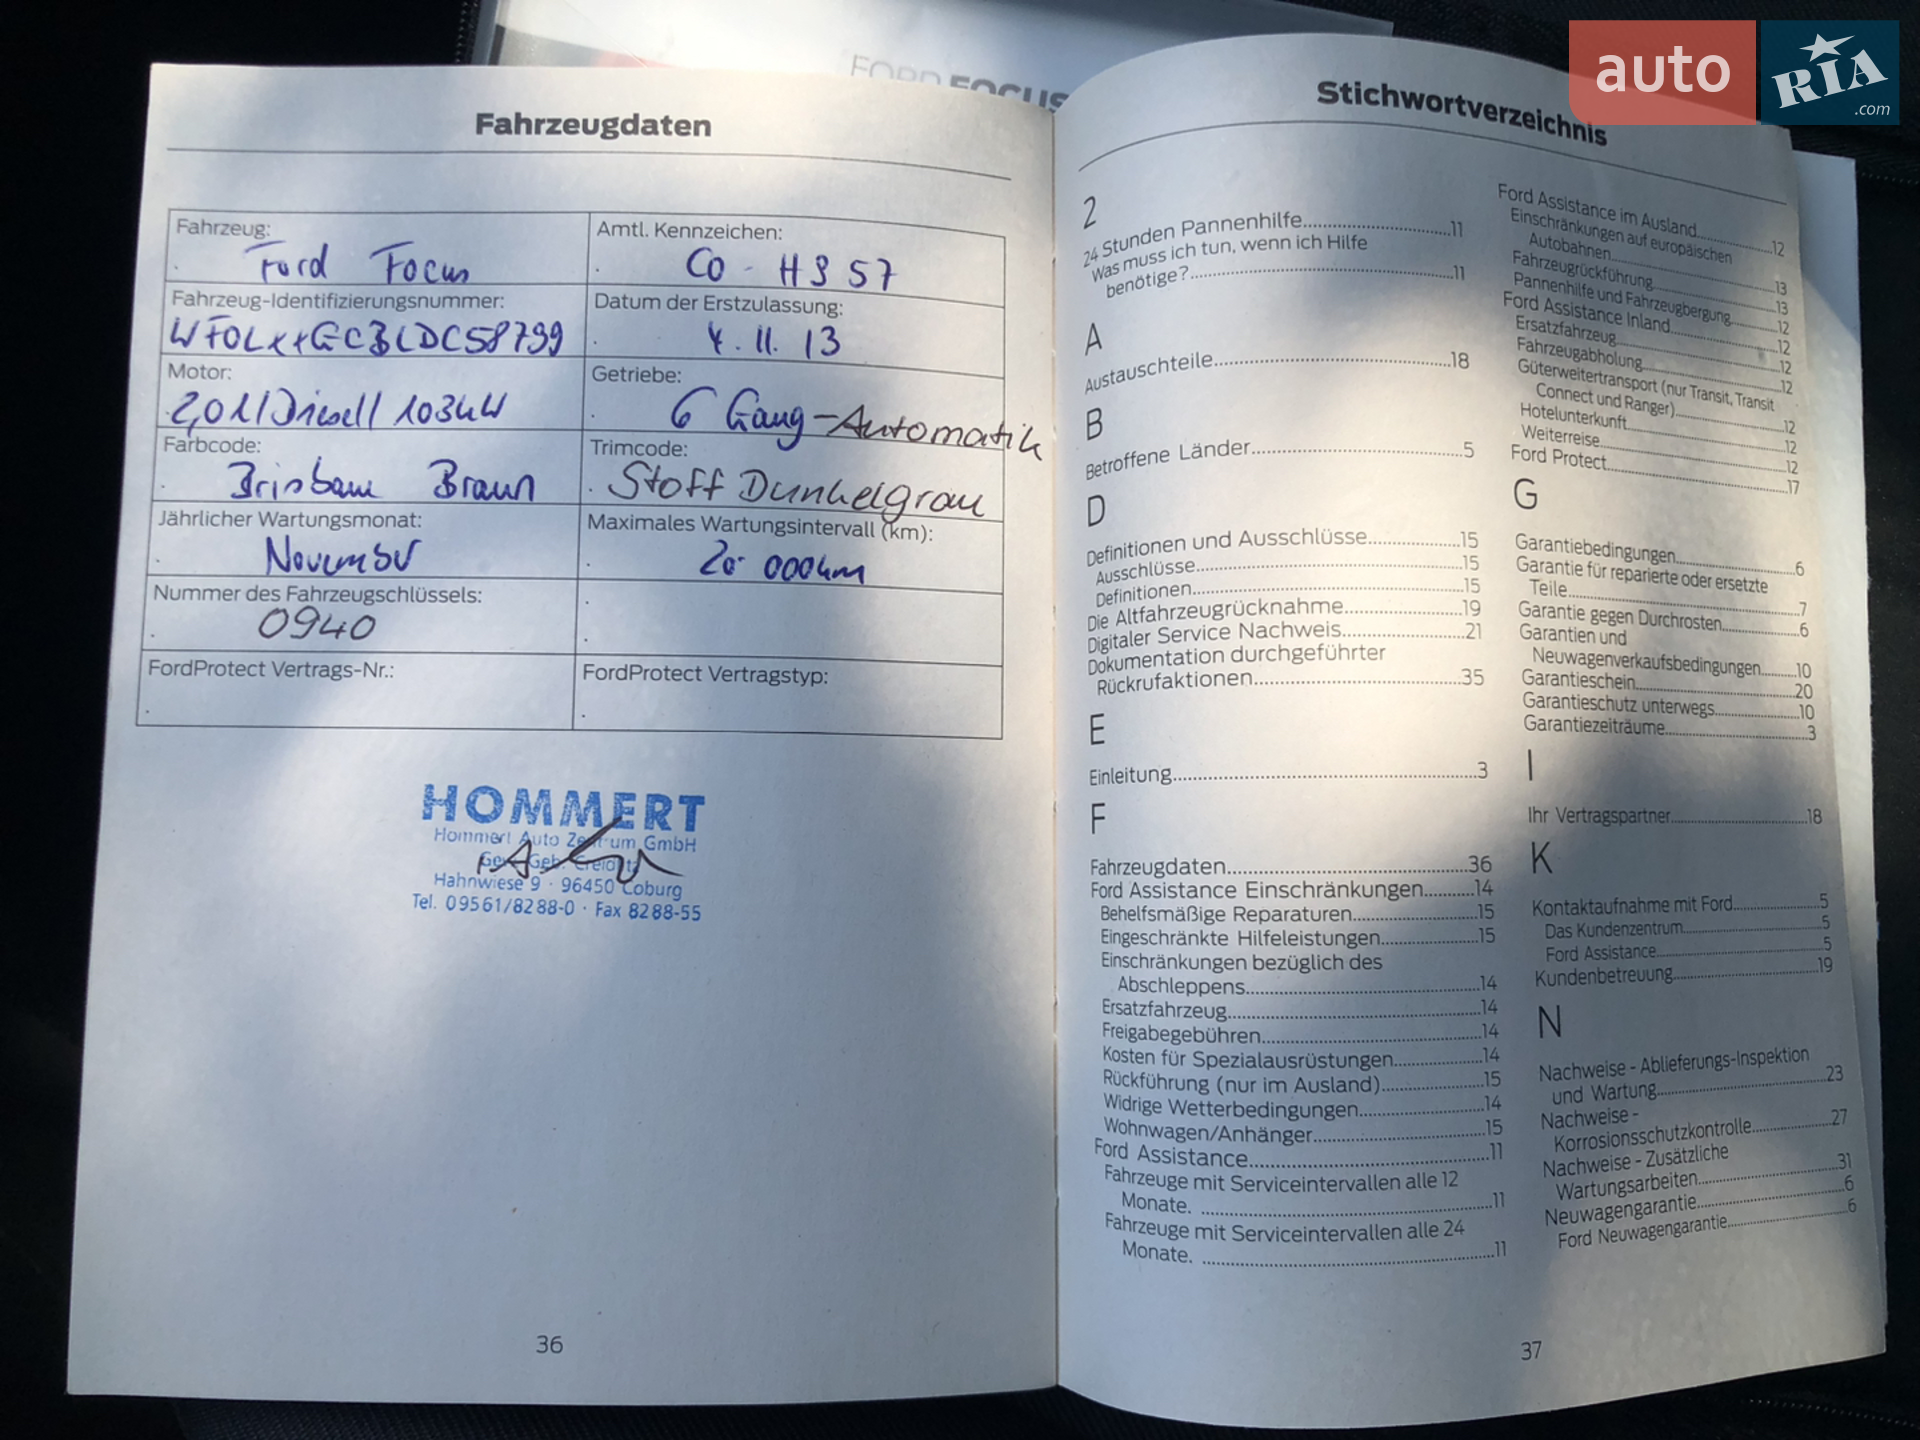 FORD FOCUS
auto
RIA
.com
Fahrzeugdaten
Fahrzeug:
Ford Focus
Amtl. Kennzeichen:
CO - HS 57
Fahrzeug-Identifizierungsnummer:
WF0LXXGCBLDC58799
Datum der Erstzulassung:
4. 11. 13
Motor:
2,0 l/Diesel/ 103kW
Getriebe:
6 Gang-Automatik
Farbcode:
Brisbane Braun
Trimcode:
Stoff Dunkelgrau
Jährlicher Wartungsmonat:
November
Maximales Wartungsintervall (km):
20 000km
Nummer des Fahrzeugschlüssels:
0940
FordProtect Vertrags-Nr.:
FordProtect Vertragstyp:
HOMMERT
Hommert Auto Zentrum GmbH
Gew. Geb. Creidlitz
Hahnwiese 9 · 96450 Coburg
Tel. 09561/8288-0 · Fax 8288-55
36
Stichwortverzeichnis
2
24 Stunden Pannenhilfe..........11
Was muss ich tun, wenn ich Hilfe
benötige?..........11
A
Austauschteile..........18
B
Betroffene Länder..........5
D
Definitionen und Ausschlüsse..........15
Ausschlüsse..........15
Definitionen..........15
Die Altfahrzeugrücknahme..........19
Digitaler Service Nachweis..........21
Dokumentation durchgeführter
Rückrufaktionen..........35
E
Einleitung..........3
F
Fahrzeugdaten..........36
Ford Assistance Einschränkungen..........14
Behelfsmäßige Reparaturen..........15
Eingeschränkte Hilfeleistungen..........15
Einschränkungen bezüglich des
Abschleppens..........14
Ersatzfahrzeug..........14
Freigabegebühren..........14
Kosten für Spezialausrüstungen..........14
Rückführung (nur im Ausland)..........15
Widrige Wetterbedingungen..........14
Wohnwagen/Anhänger..........15
Ford Assistance..........11
Fahrzeuge mit Serviceintervallen alle 12
Monate. ..........11
Fahrzeuge mit Serviceintervallen alle 24
Monate. ..........11
Ford Assistance im Ausland..........12
Einschränkungen auf europäischen
Autobahnen..........13
Fahrzeugrückführung..........13
Pannenhilfe und Fahrzeugbergung..........12
Ford Assistance Inland..........12
Ersatzfahrzeug..........12
Fahrzeugabholung..........12
Güterweitertransport (nur Transit, Transit
Connect und Ranger)..........12
Hotelunterkunft..........12
Weiterreise..........12
Ford Protect..........17
G
Garantiebedingungen..........6
Garantie für reparierte oder ersetzte
Teile..........7
Garantie gegen Durchrosten..........6
Garantien und
Neuwagenverkaufsbedingungen..........10
Garantieschein..........20
Garantieschutz unterwegs..........10
Garantiezeiträume..........3
I
Ihr Vertragspartner..........18
K
Kontaktaufnahme mit Ford..........5
Das Kundenzentrum..........5
Ford Assistance..........5
Kundenbetreuung..........19
N
Nachweise - Ablieferungs-Inspektion
und Wartung..........23
Nachweise -
Korrosionsschutzkontrolle..........27
Nachweise - Zusätzliche
Wartungsarbeiten..........31
Neuwagengarantie..........6
Ford Neuwagengarantie..........6
37